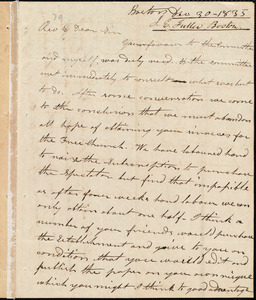 Boston Dec 30 - 1835
C. Fuller Boston
Rev & Dear Sir
Your favour to the Committee
and myself, was duly recd. & the committee
met immediately to consult what was best
to do. After some conversation we came
to the conclusion that we must abandon
all hope of obtaining your services for
the Free Church. We have laboured hard
to raise the subscription to purchase
the Spectator but find that impossible
as after four weeks hard labour we can
only obtain about one half. I think a
number of your friends would purchase
the establishment and give to you on
condition that you would edit &
publish the paper on your own risque
which you might I think to good advantage